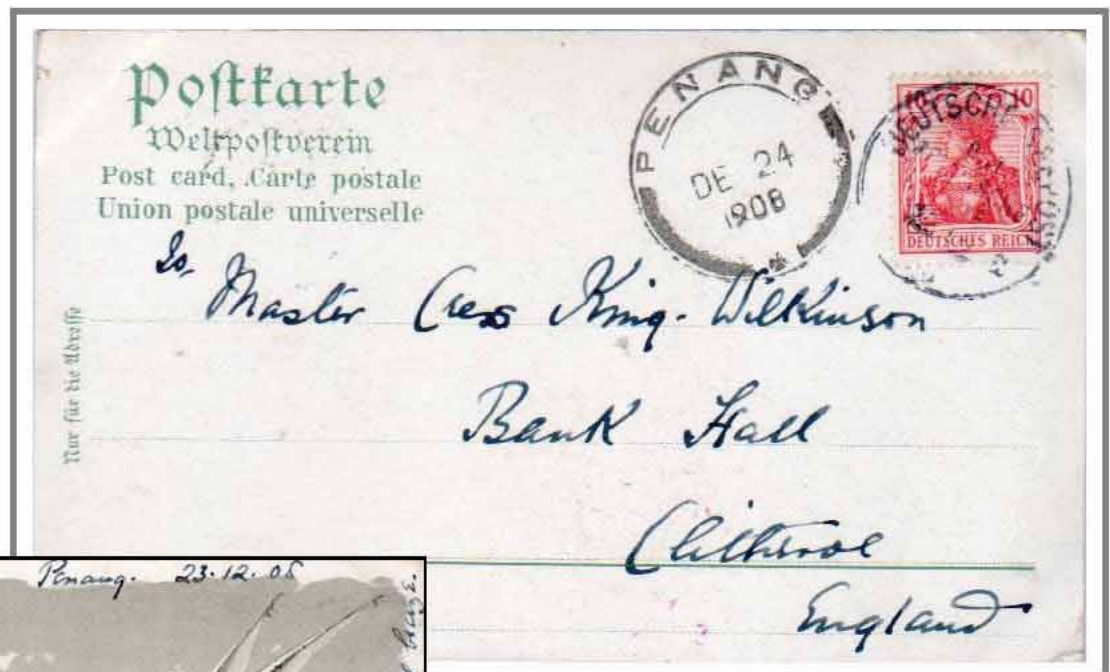 Postkarte
Weltpostverein
Post card, Carte postale
Union postale universelle
Nur für die Adresse
PENANG
DE 24
1908
10 10
DEUTSCHES REICH
DEUTSCHE
To,
Master Cress King-Wilkinson
Bank Hall
Clitheroe
England
Penang. 23.12.08